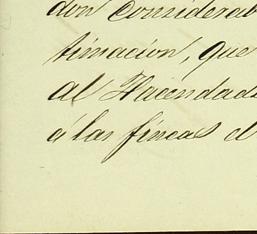 don considerab
timacion, que
al Hacendad
á las fincas d